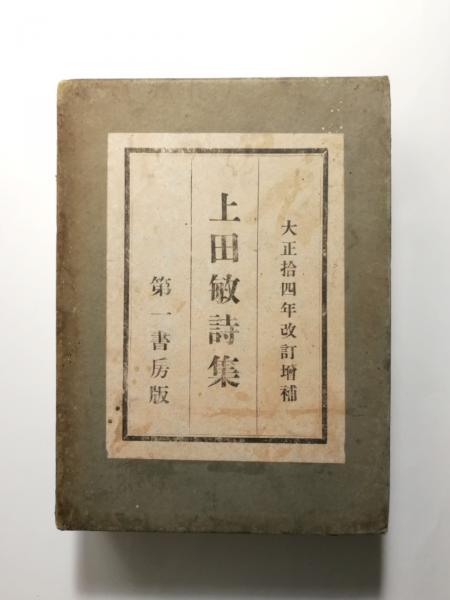 大正拾四年改訂增補
上田敏詩集
第一書房版